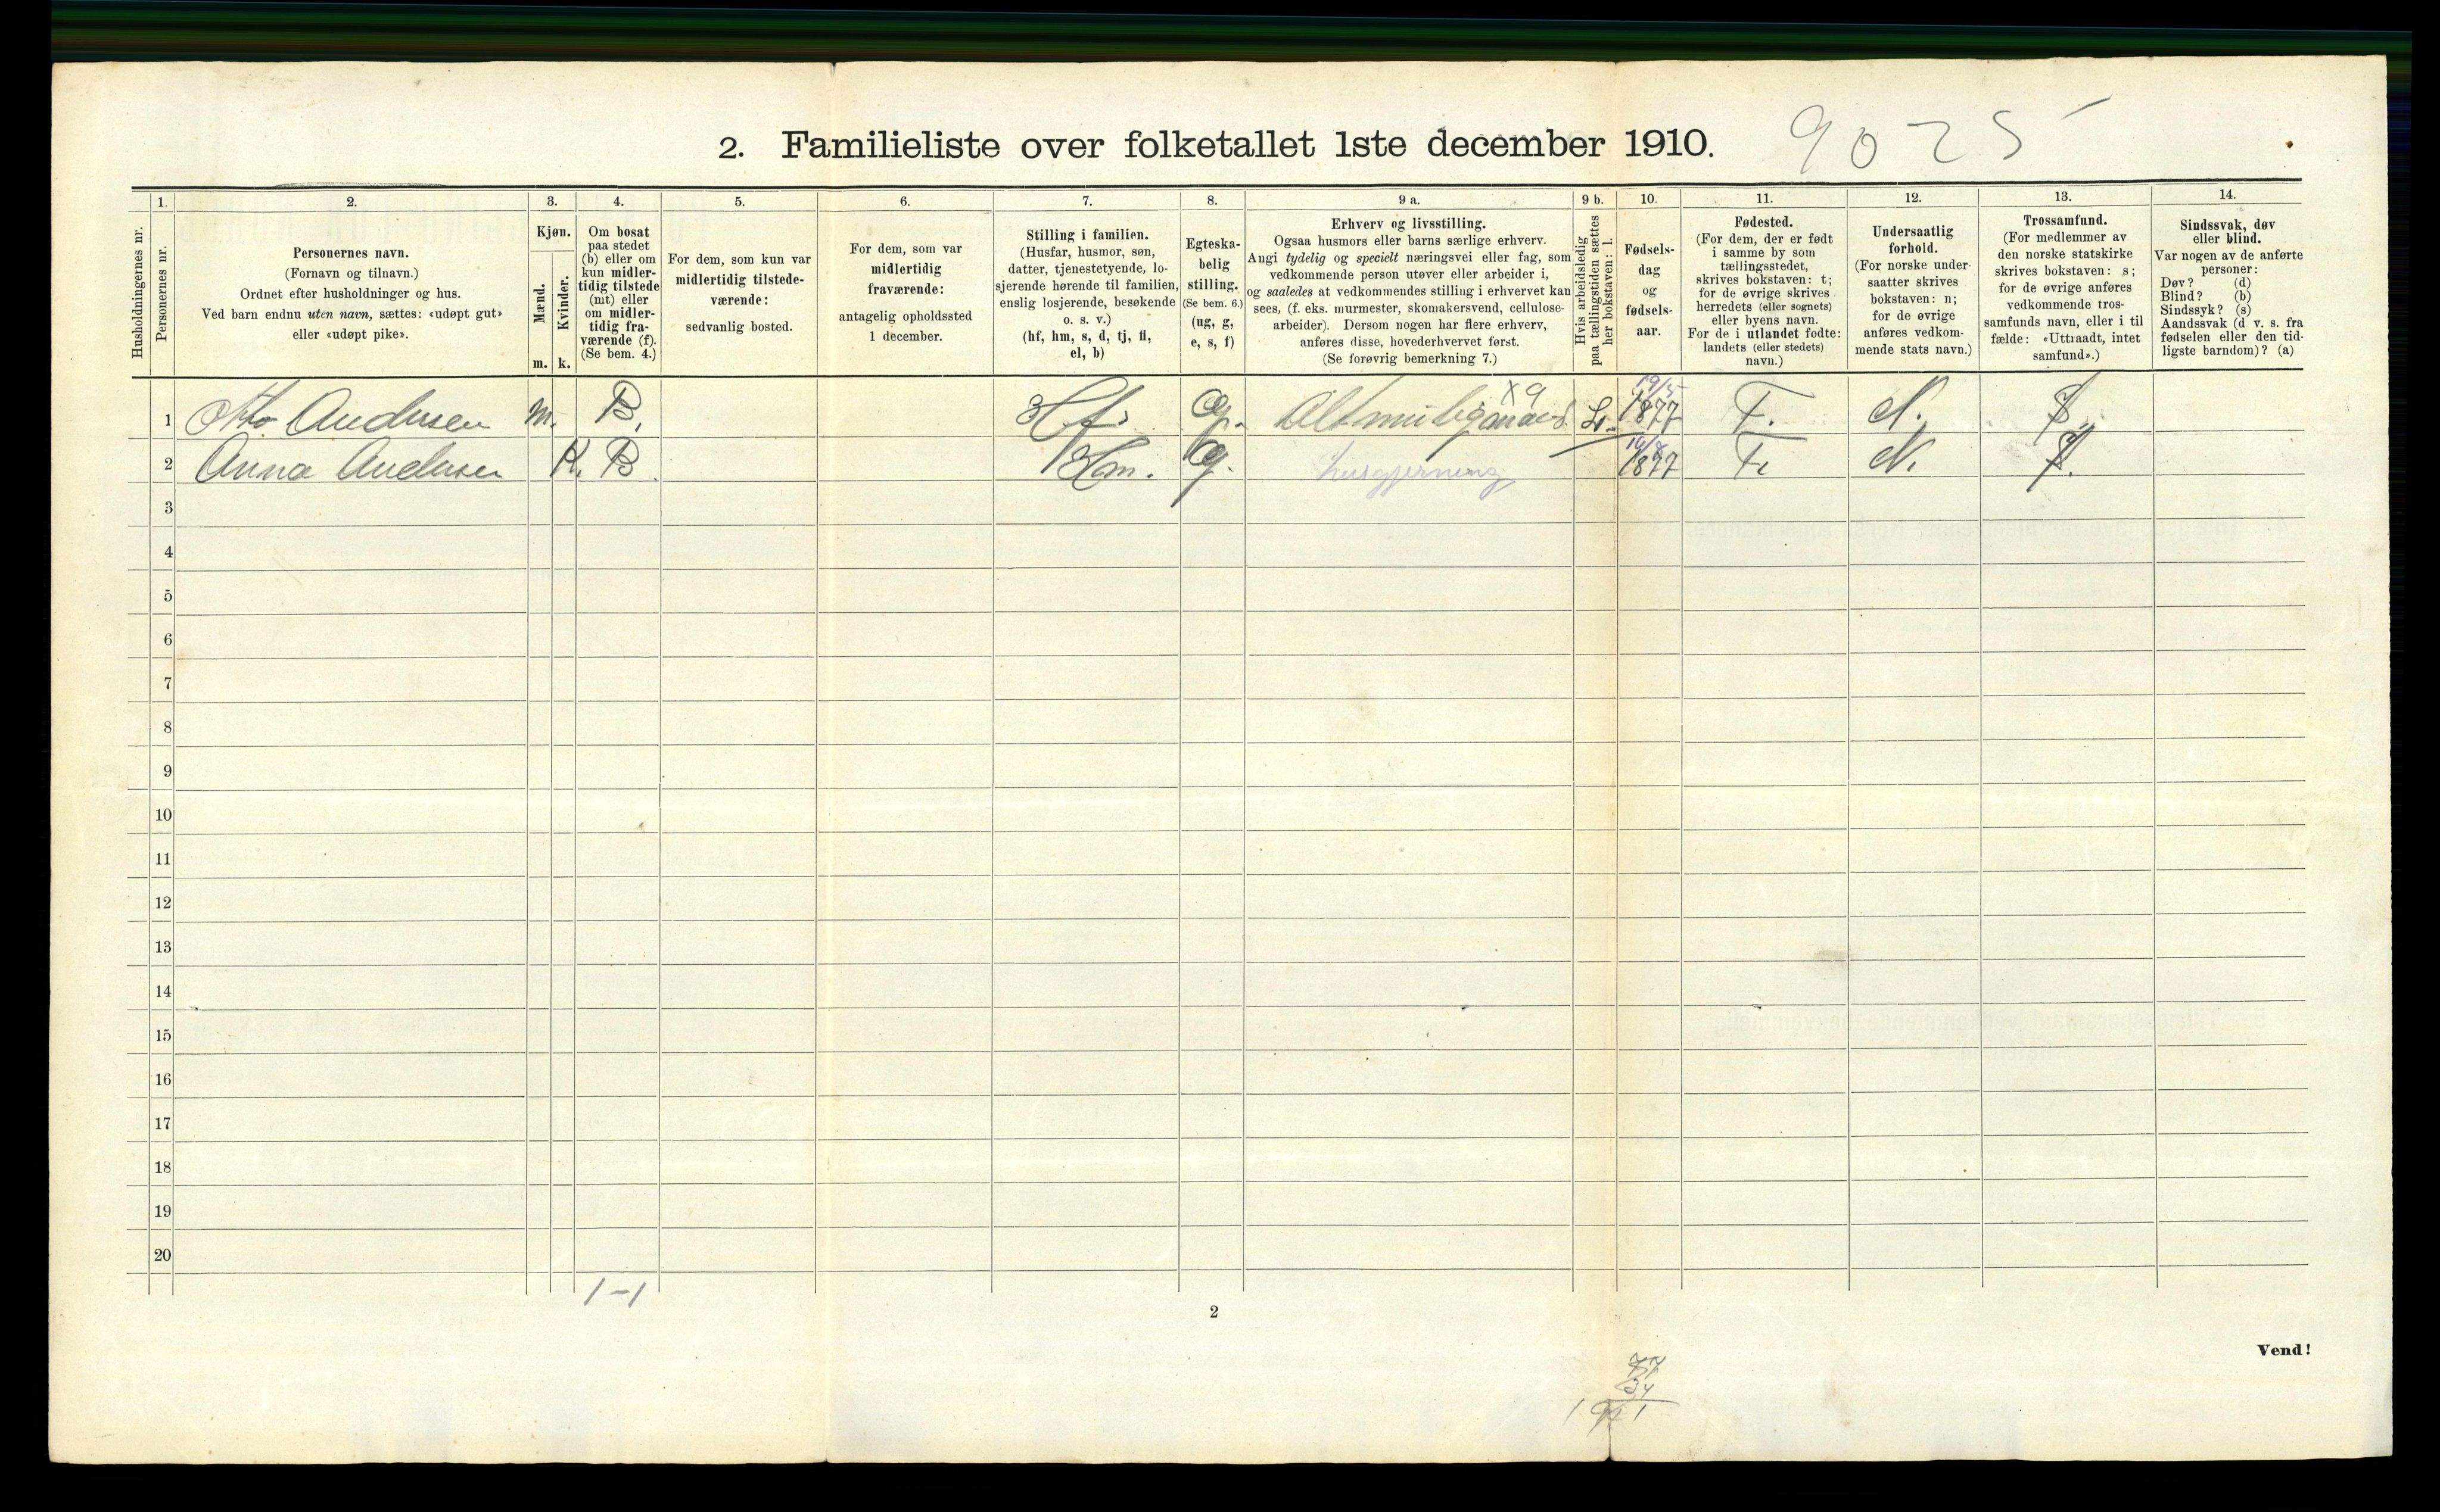 2. Familieliste over folketallet 1ste december 1910. 9025
1. 2. 3. 4. 5. 6. 7. 8. 9 a. 9 b. 10. 11. 12. 13. 14.
Husholdningernes nr.
Personernes nr.
Personernes navn.
(Fornavn og tilnavn.)
Ordnet efter husholdninger og hus.
Ved barn endnu uten navn, sættes: «udøpt gut»
eller «udøpt pike».
Kjøn.
Mænd.
Kvinder.
m. k.
Om bosat
paa stedet
(b) eller om
kun midler-
tidig tilstede
(mt) eller
om midler-
tidig fra-
værende (f).
(Se bem. 4.)
For dem, som kun var
midlertidig tilstede-
værende:
sedvanlig bosted.
For dem, som var
midlertidig
fraværende:
antagelig opholdssted
1 december.
Stilling i familien.
(Husfar, husmor, søn,
datter, tjenestetyende, lo-
sjerende hørende til familien,
enslig losjerende, besøkende
o. s. v.)
(hf, hm, s, d, tj, fl,
el, b)
Egteska-
belig
stilling.
(Se bem. 6.)
(ug, g,
e, s, f)
Erhverv og livsstilling.
Ogsaa husmors eller barns særlige erhverv.
Angi tydelig og specielt næringsvei eller fag, som
vedkommende person utøver eller arbeider i,
og saaledes at vedkommendes stilling i erhvervet kan
sees, (f. eks. murmester, skomakersvend, cellulose-
arbeider). Dersom nogen har flere erhverv,
anføres disse, hovederhvervet først.
(Se forøvrig bemerkning 7.)
Hvis arbeidsledig
paa tællingstiden sættes
her bokstaven: l.
Fødsels-
dag
og
fødsels-
aar.
Fødested.
(For dem, der er født
i samme by som
tællingsstedet,
skrives bokstaven: t;
for de øvrige skrives
herredets (eller sognets)
eller byens navn.
For de i utlandet fødte:
landets (eller stedets)
navn.)
Undersaatlig
forhold.
(For norske under-
saatter skrives
bokstaven: n;
for de øvrige
anføres vedkom-
mende stats navn.)
Trossamfund.
(For medlemmer av
den norske statskirke
skrives bokstaven: s;
for de øvrige anføres
vedkommende tros-
samfunds navn, eller i til
fælde: «Uttraadt, intet
samfund».)
Sindssvak, døv
eller blind.
Var nogen av de anførte
personer:
Døv? (d)
Blind? (b)
Sindssyk? (s)
Aandssvak (d v. s. fra
fødselen eller den tid-
ligste barndom)? (a)
x9 19/5
1 Otto Andersen m. B. Hf. G. Altmuligmand L. 1877 T. N. S.
2 Anna Andersen K. B Hm. G. husgjerning 1877 T. N. S.
3
4
5
6
7
8
9
10
11
12
13
14
15
16
17
18
19
20
1-1
2
Vend!
77